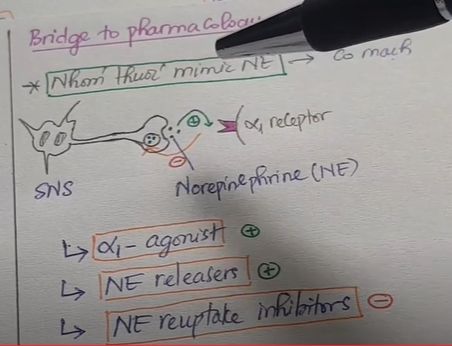 Bridge to pharmacology
* Nhóm thuốc mimic NE → co mạch
⊕ α1 receptor
⊖
SNS
Norepinephrine (NE)
↳ α1 - agonist ⊕
↳ NE releasers ⊕
↳ NE reuptake inhibitors ⊖